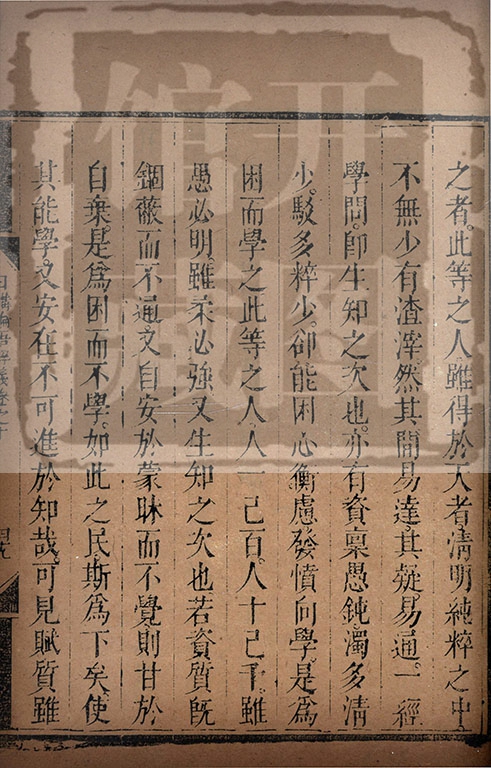 之者此等之人雖得於天者清明純粹之中
不無少有渣滓然其間易達其疑易通一經
學問即生知之次也亦有資稟愚鈍濁多清
少駁多粹少卻能困心衡慮發憤向學是爲
困而學之此等之人人一己百人十己千雖
愚必明雖柔必強又生知之次也若資質既
錮蔽而不通又自安於蒙昧而不覺則甘於
自棄是爲困而不學如此之民斯爲下矣使
其能學又安在不可進於知哉可見賦質雖